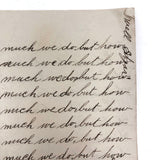 much we do but how
much we do but how
much we do but how
much we do but how
much we do but how
much we do but how
much we do but how
much we do but how